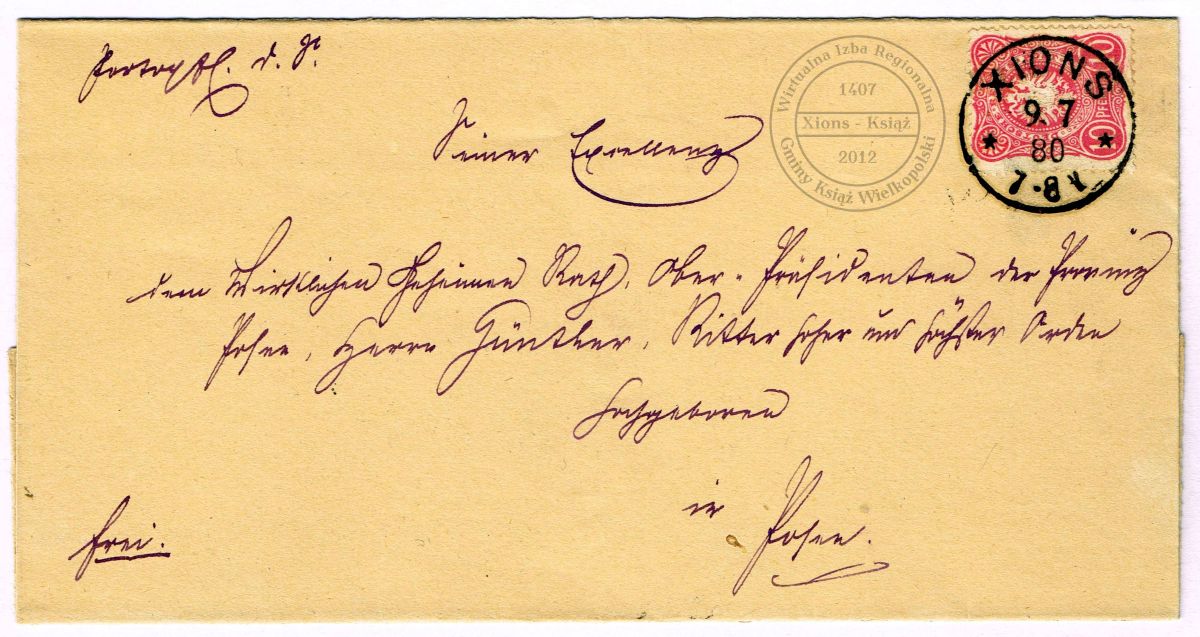 Portopfl. d. S.
Seiner Excellenz
dem Wirklichen Geheimen Rath, Ober-Präsidenten der Provinz
Posen, Herrn Günther, Ritter hoher und höchster Orden
Hochgeboren
in
Posen.
frei.
XIONS
9. 7
80
7-8 V
10 PFE
Wirtualna Izba Regionalna
1407
Xions - Książ
2012
Gminy Książ Wielkopolski